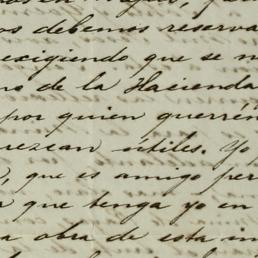 os debemos reserva
ecsigiendo que se m
no de la Hacienda
por quien querrén
rezcan útiles. Yo
, que es amigo per
a que tenga yo en
a obra de esta in